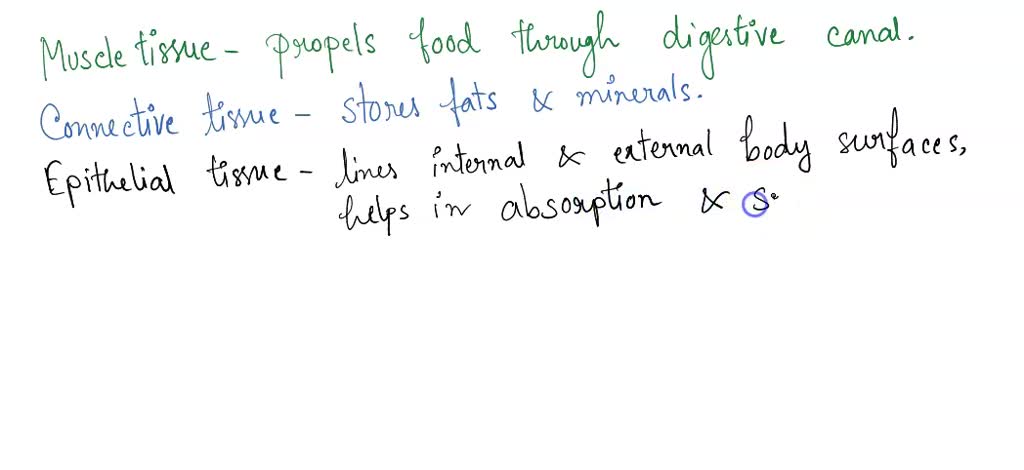 Muscle tissue - propels food through digestive canal.
Connective tissue - stores fats & minerals.
Epithelial tissue - lines internal & external body surfaces,
helps in absorption & s